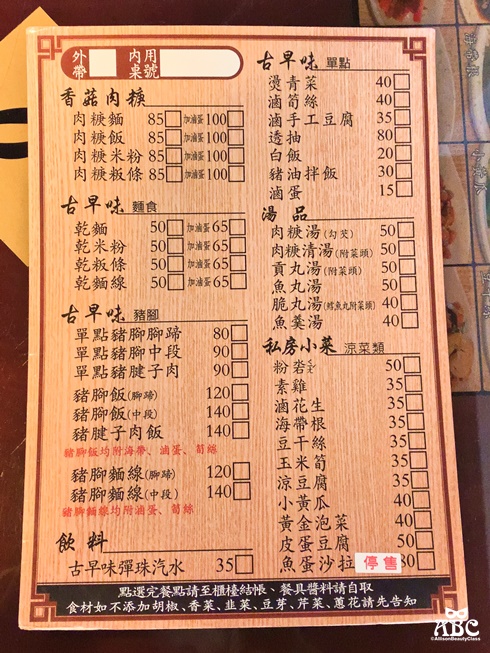 外帶 內用桌號
香菇肉粳
肉粳麵 85 加滷蛋100
肉粳飯 85 加滷蛋100
肉粳米粉 85 加滷蛋100
肉粳粄條 85 加滷蛋100
古早味 麵食
乾麵 50 加滷蛋65
乾米粉 50 加滷蛋65
乾粄條 50 加滷蛋65
乾麵線 50 加滷蛋65
古早味 豬腳
單點豬腳腳蹄 80
單點豬腳中段 90
單點豬腱子肉 90
豬腳飯(腳蹄) 120
豬腳飯(中段) 140
豬腱子肉飯 140
豬腳飯均附海帶、滷蛋、筍絲
豬腳麵線(腳蹄) 120
豬腳麵線(中段) 140
豬腳麵線均附滷蛋、筍絲
飲料
古早味彈珠汽水 35
古早味 單點
燙青菜 40
滷筍絲 40
滷手工豆腐 35
透抽 80
白飯 20
豬油拌飯 30
滷蛋 15
湯品
肉粳湯(勾芡) 50
肉粳清湯(附菜頭) 50
貢丸湯(附菜頭) 50
魚丸湯 50
脆丸湯(鱈魚丸附菜頭) 40
魚羹湯 40
私房小菜 涼菜類
50
素雞 35
滷花生 35
海帶根 35
豆干絲 35
玉米筍 35
涼豆腐 35
小黃瓜 40
黃金泡菜 40
皮蛋豆腐 50
魚蛋沙拉 停售 80
點選完餐點請至櫃檯結帳、餐具醬料請自取
食材如不添加胡椒、香菜、韭菜、豆芽、芹菜、蔥花請先告知
ABC
©AllisonBeautyClass